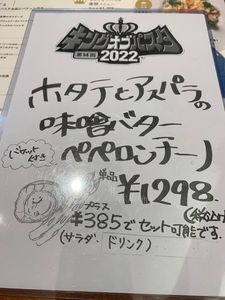 キングオブパスタ
第14回
2022
ホタテとアスパラの
味噌バター
ペペロンチーノ
(バケット付き)
単品 ¥1298.
(税込)
プラス
¥385でセット可能です。
(サラダ・ドリンク)